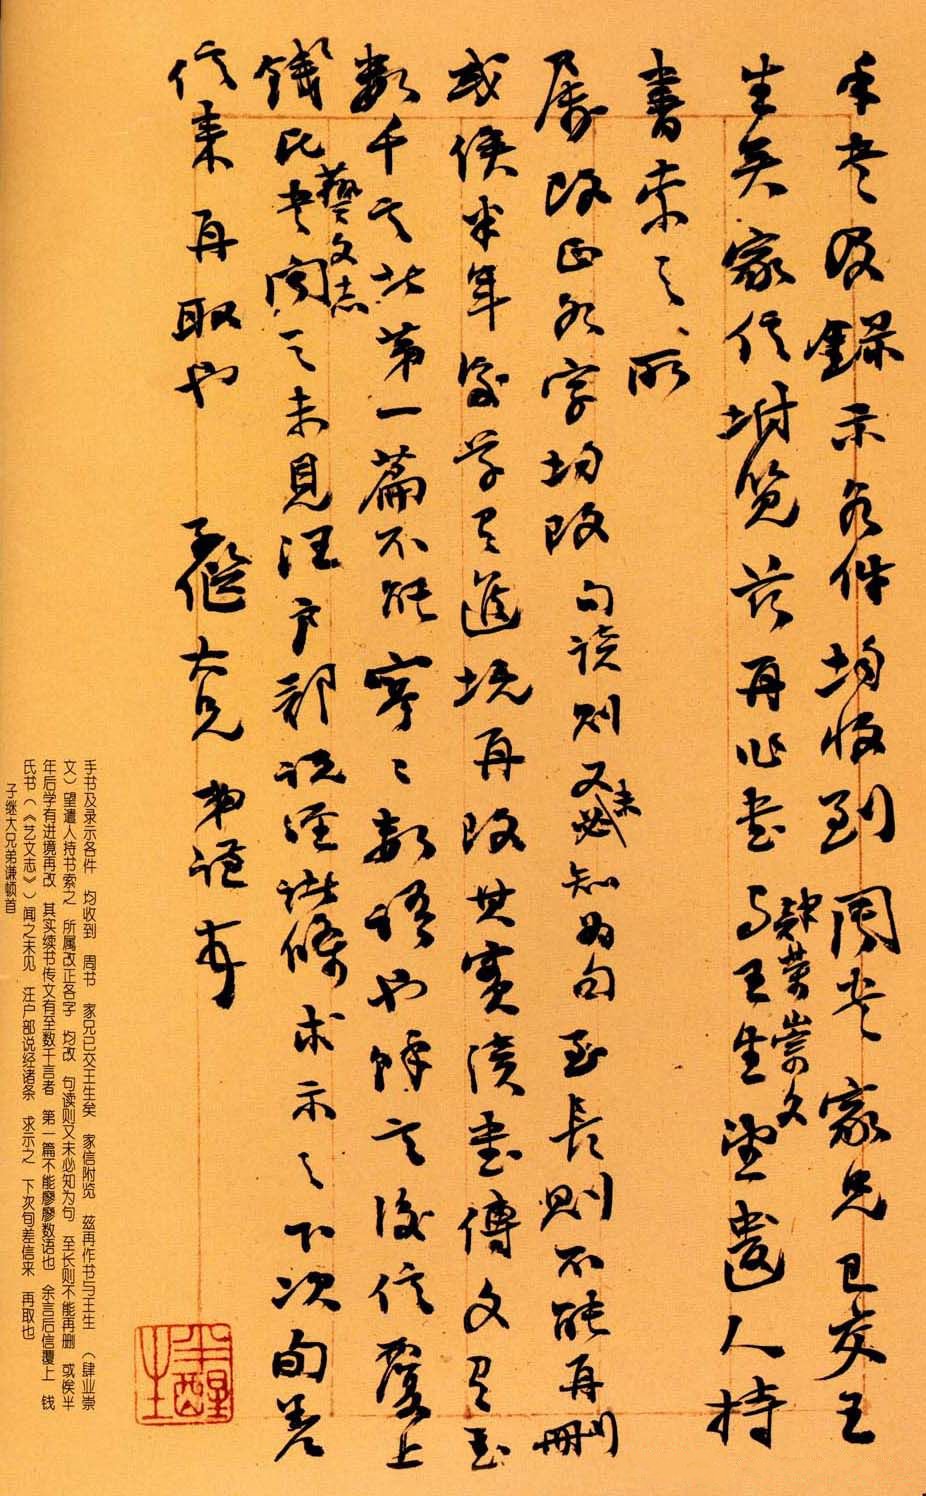 手书及录示各件均收到周书家兄已交王
生矣家信附览兹再作书与王生肄业崇文望遣人持
书索之所
属改正各字均改句读则又未必知为句至长则不能再删
或俟半年后学有进境再改其实续书传文有至
数千言者第一篇不能寥寥数语也余言后信覆上
钱氏书艺文志闻之未见汪户部说经诸条求示之下次旬差
信来再取也 子继大兄 弟谦顿首
手书及录示各件 均收到 周书 家兄已交王生矣 家信附览 兹再作书与王生 （肆业崇
文）望遣人持书索之 所属改正各字 均改 句读则又未必知为句 至长则不能再删 或俟半
年后学有进境再改 其实续书传文有至数千言者 第一篇不能廖廖数语也 余言后信覆上 钱
氏书（《艺文志》）闻之未见 汪户部说经诸条 求示之 下次旬差信来 再取也
子继大兄弟谦顿首